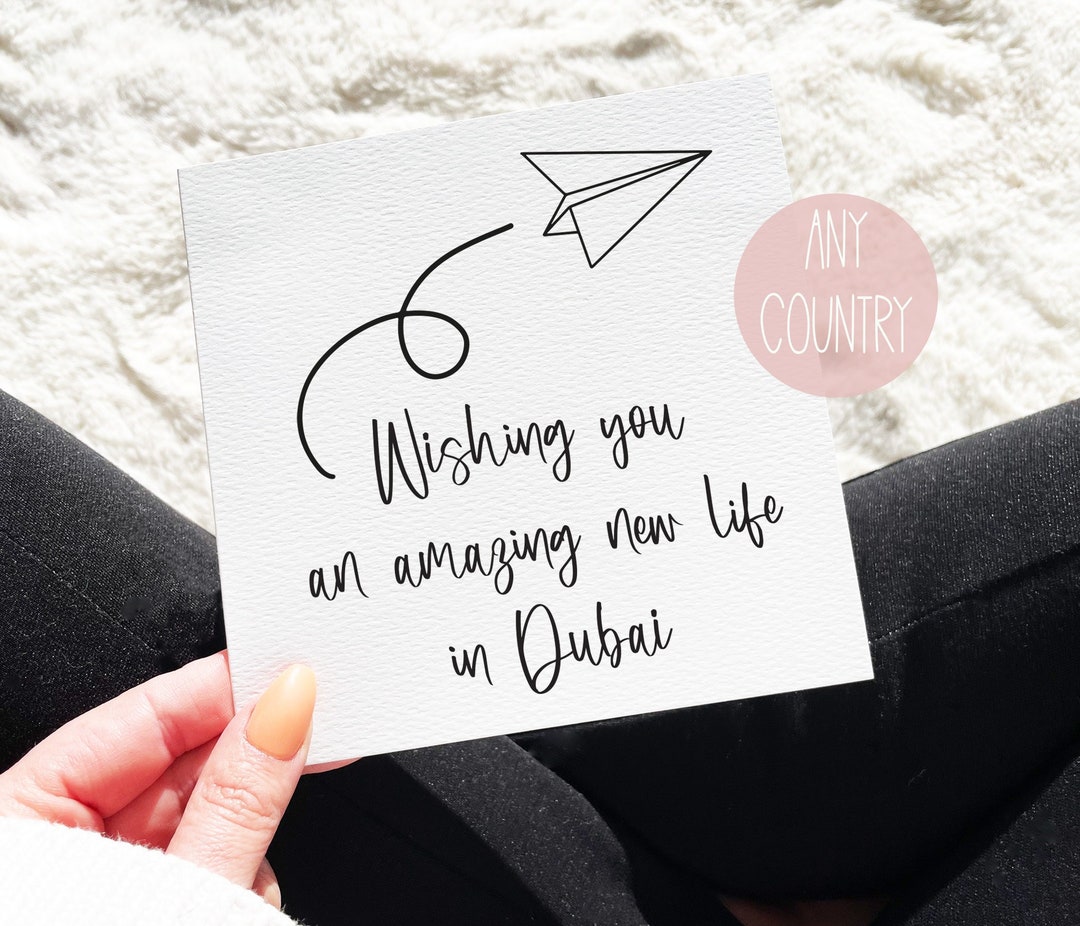 Wishing you
an amazing new life
in Dubai
ANY
COUNTRY